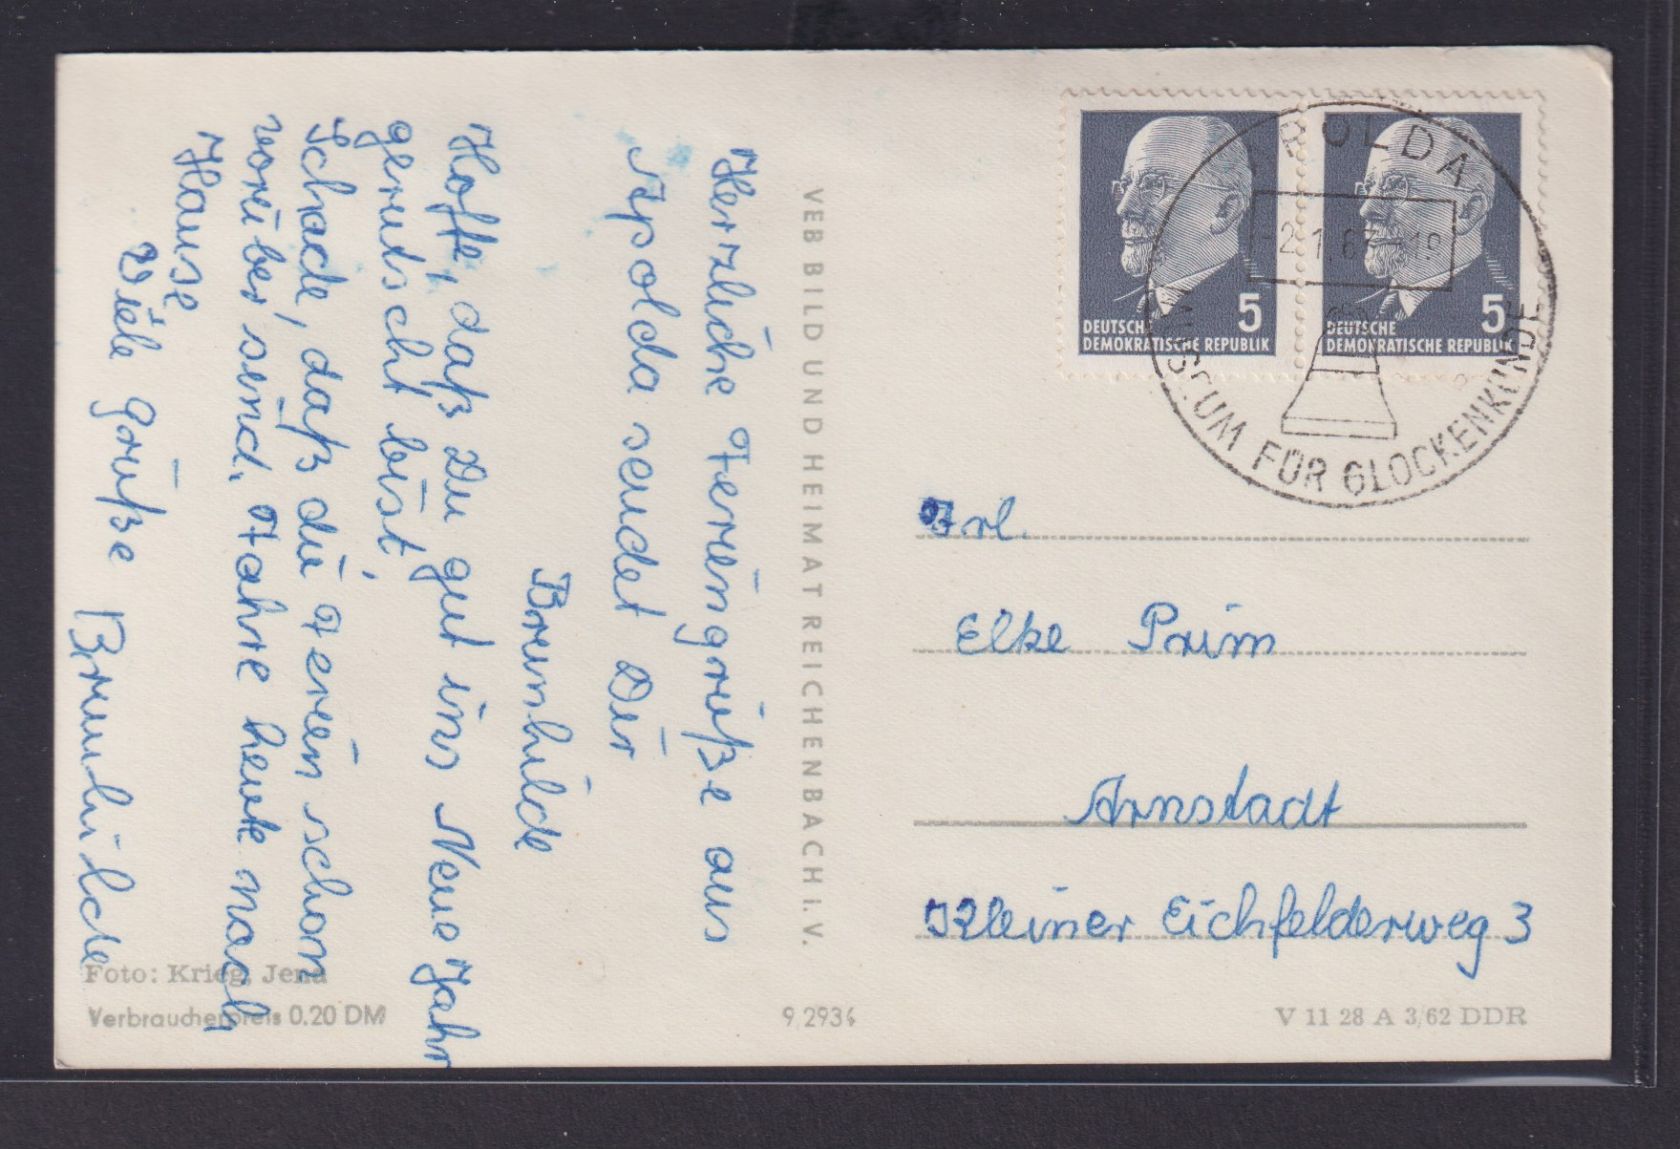 Herzliche Feriengrüße aus
Apolda sendet Dir
Brunhilde
Hoffe, daß Du gut ins Neue Jahr
gerutscht bist.
Schade, daß die Ferien schon
vorüber sind. Fahre heute nach
Hause
Viele Grüße Brunhilde
Foto: Krieg, Jena
Verbraucherpreis 0.20 DM
VEB BILD UND HEIMAT REICHENBACH I. V.
9 2934
DEUTSCHE
DEMOKRATISCHE REPUBLIK
5
DEUTSCHE
DEMOKRATISCHE REPUBLIK
5
APOLDA
-2.1.67-19
MUSEUM FÜR GLOCKENKUNDE
Frl.
Elke Prim
Arnstadt
Kleiner Eichfelderweg 3
V 11 28 A 3/62 DDR